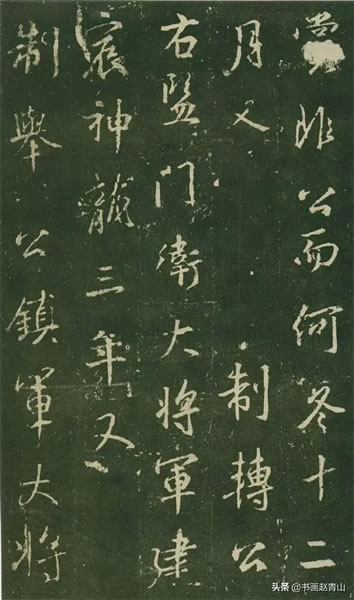 非公而何冬十二
月又 制轉公
右監門衛大將軍建
神龍三年又
制舉公鎮軍大將
头条 @书画赵青山